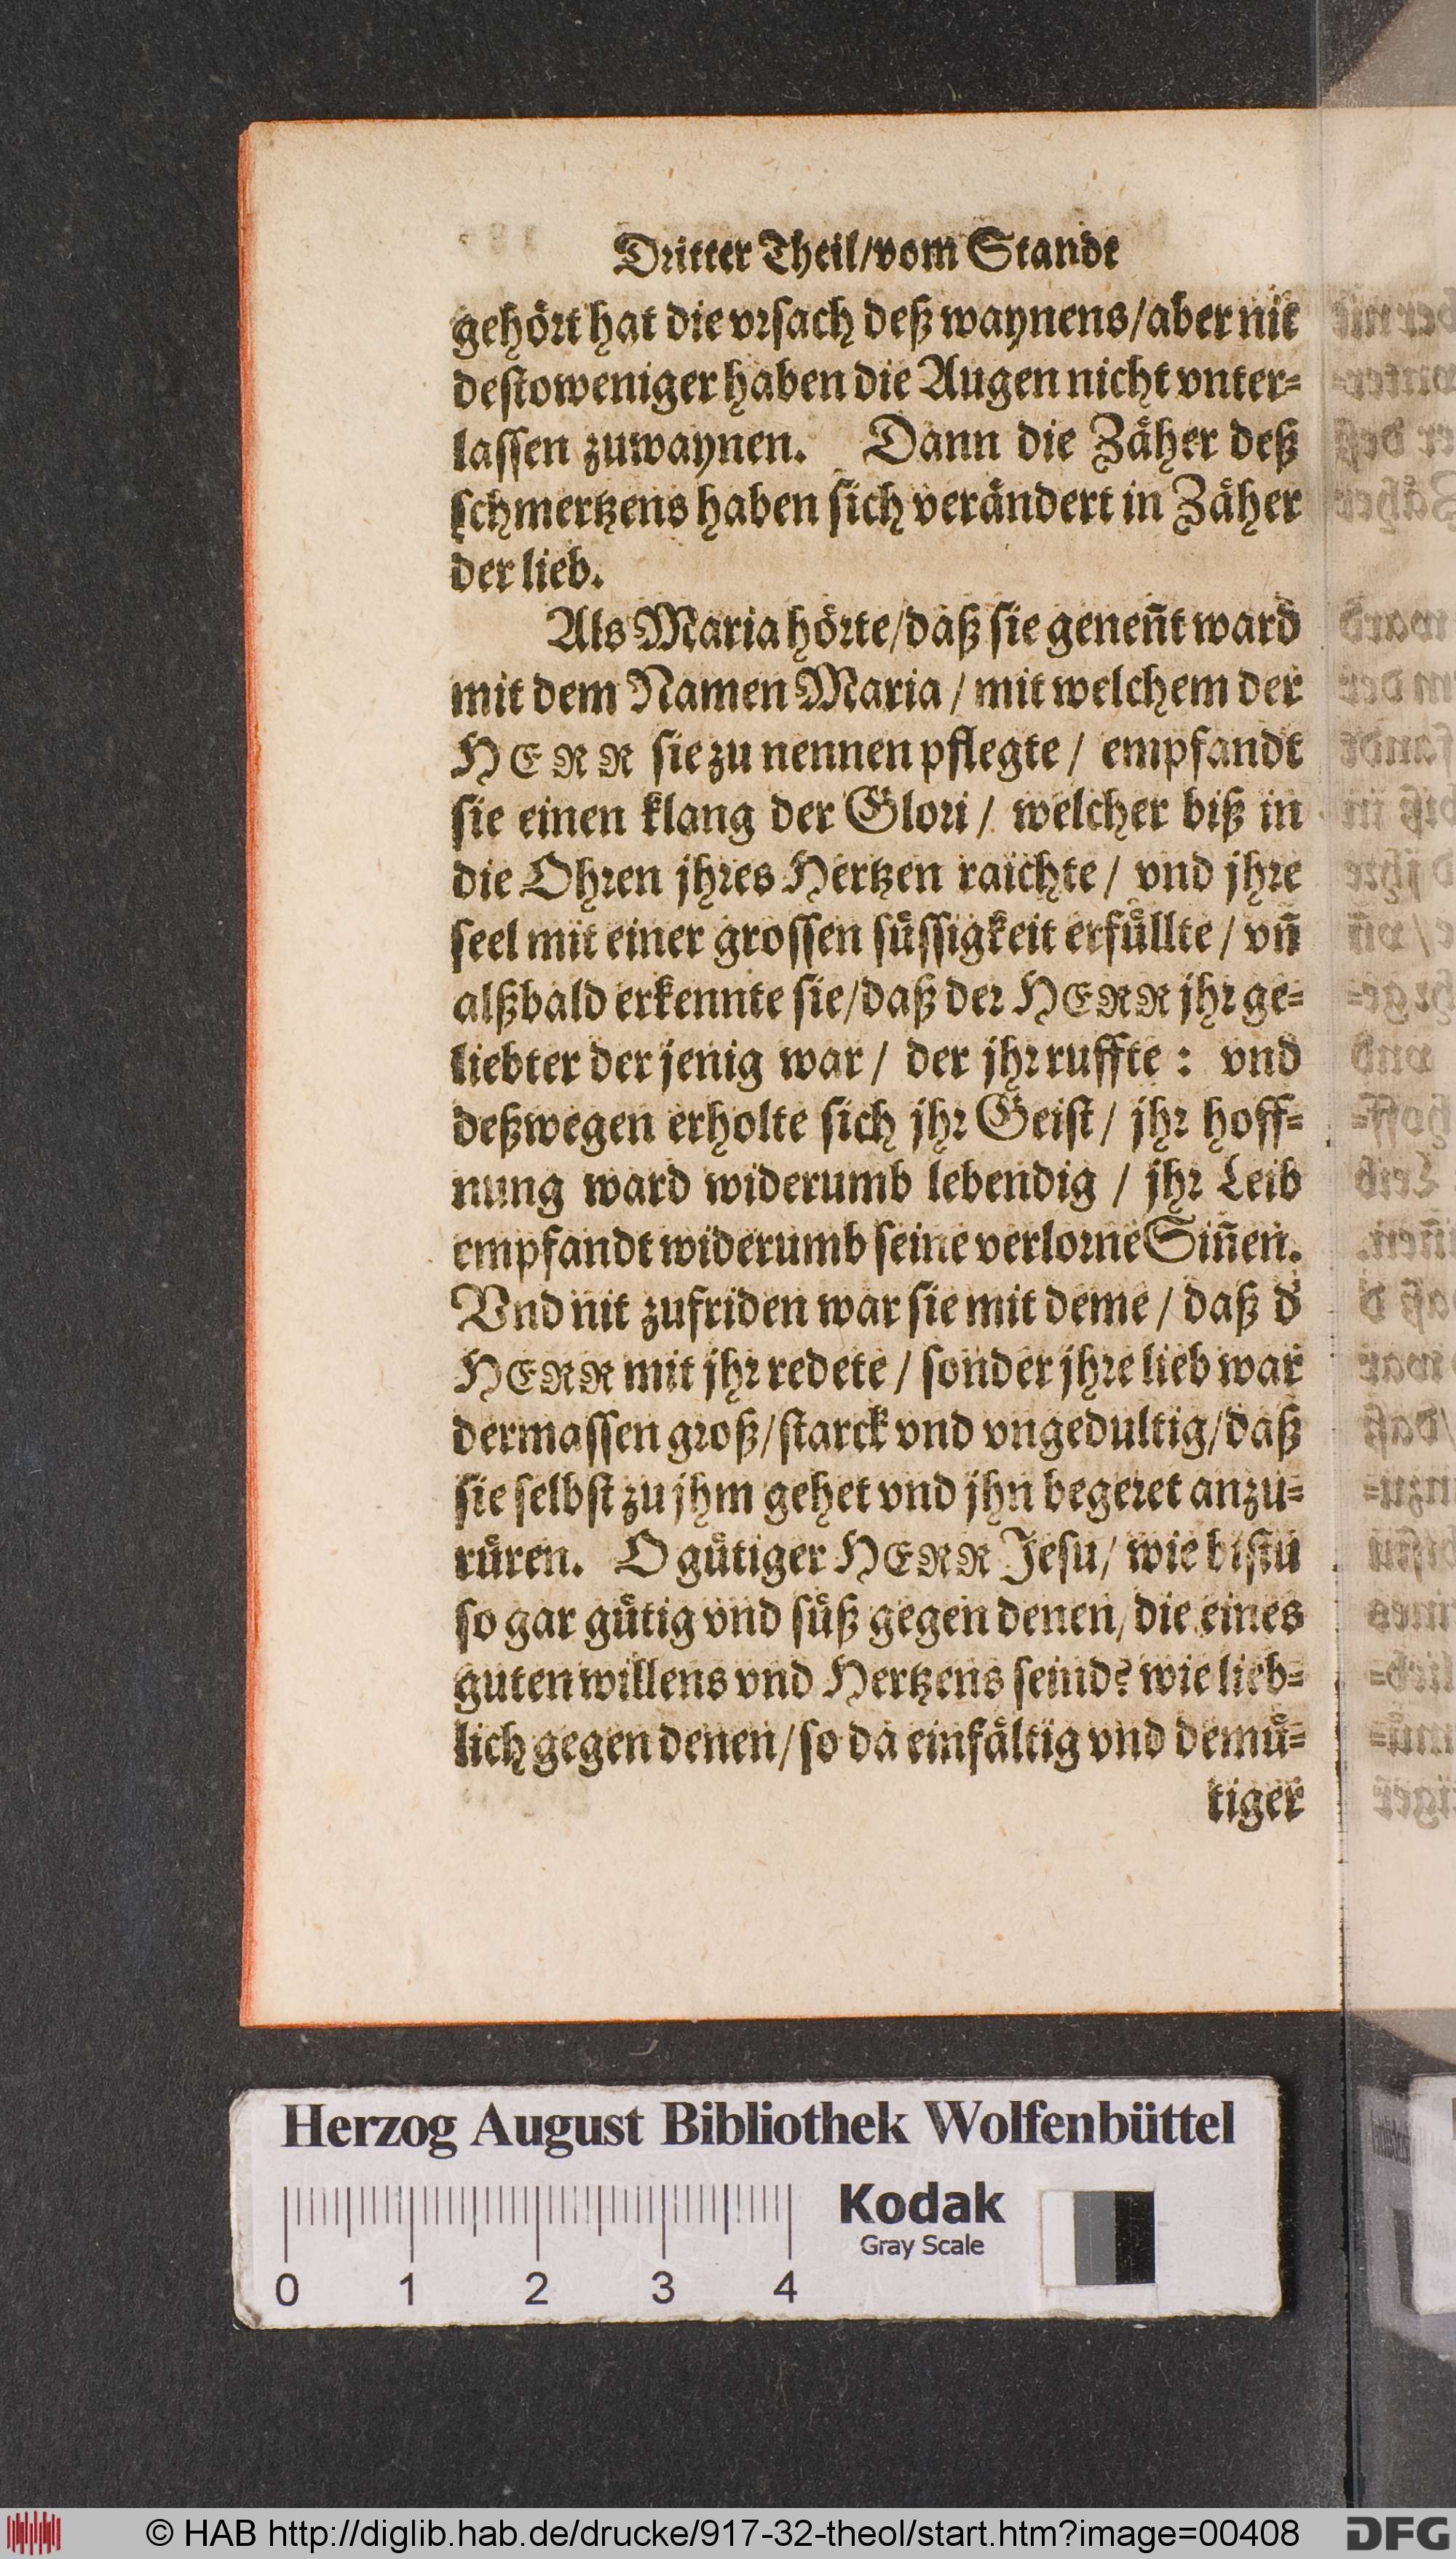 Dritter Theil/vom Stande
gehört hat die vrsach deß waynens/aber nit
destoweniger haben die Augen nicht vnter-
lassen zuwaynen. Dann die Zäher deß
schmertzens haben sich verändert in Zäher
der lieb.
Als Maria hörte/daß sie geneñt ward
mit dem Namen Maria / mit welchem der
HERR sie zu nennen pflegte / empfandt
sie einen klang der Glori / welcher biß in
die Ohren jhres Hertzen raichte / vnd jhre
seel mit einer grossen süssigkeit erfüllte / vñ
alßbald erkennte sie/daß der HERR jhr ge-
liebter der jenig war / der jhr ruffte : vnd
deßwegen erholte sich jhr Geist / jhr hoff-
nung ward widerumb lebendig / jhr Leib
empfandt widerumb seine verlorne Siñen.
Vnd nit zufriden war sie mit deme / daß d'
HERR mit jhr redete / sonder jhre lieb war
dermassen groß/starck vnd vngedultig/daß
sie selbst zu jhm gehet vnd jhn begeret anzu-
rüren. O gütiger HERR Jesu/ wie bistu
so gar gütig vnd süß gegen denen/die eines
guten willens vnd Hertzens seind? wie lieb-
lich gegen denen/so da einfältig vnd demü-
tiger
Herzog August Bibliothek Wolfenbüttel
Kodak
Gray Scale
0 1 2 3 4
© HAB http://diglib.hab.de/drucke/917-32-theol/start.htm?image=00408
DFG